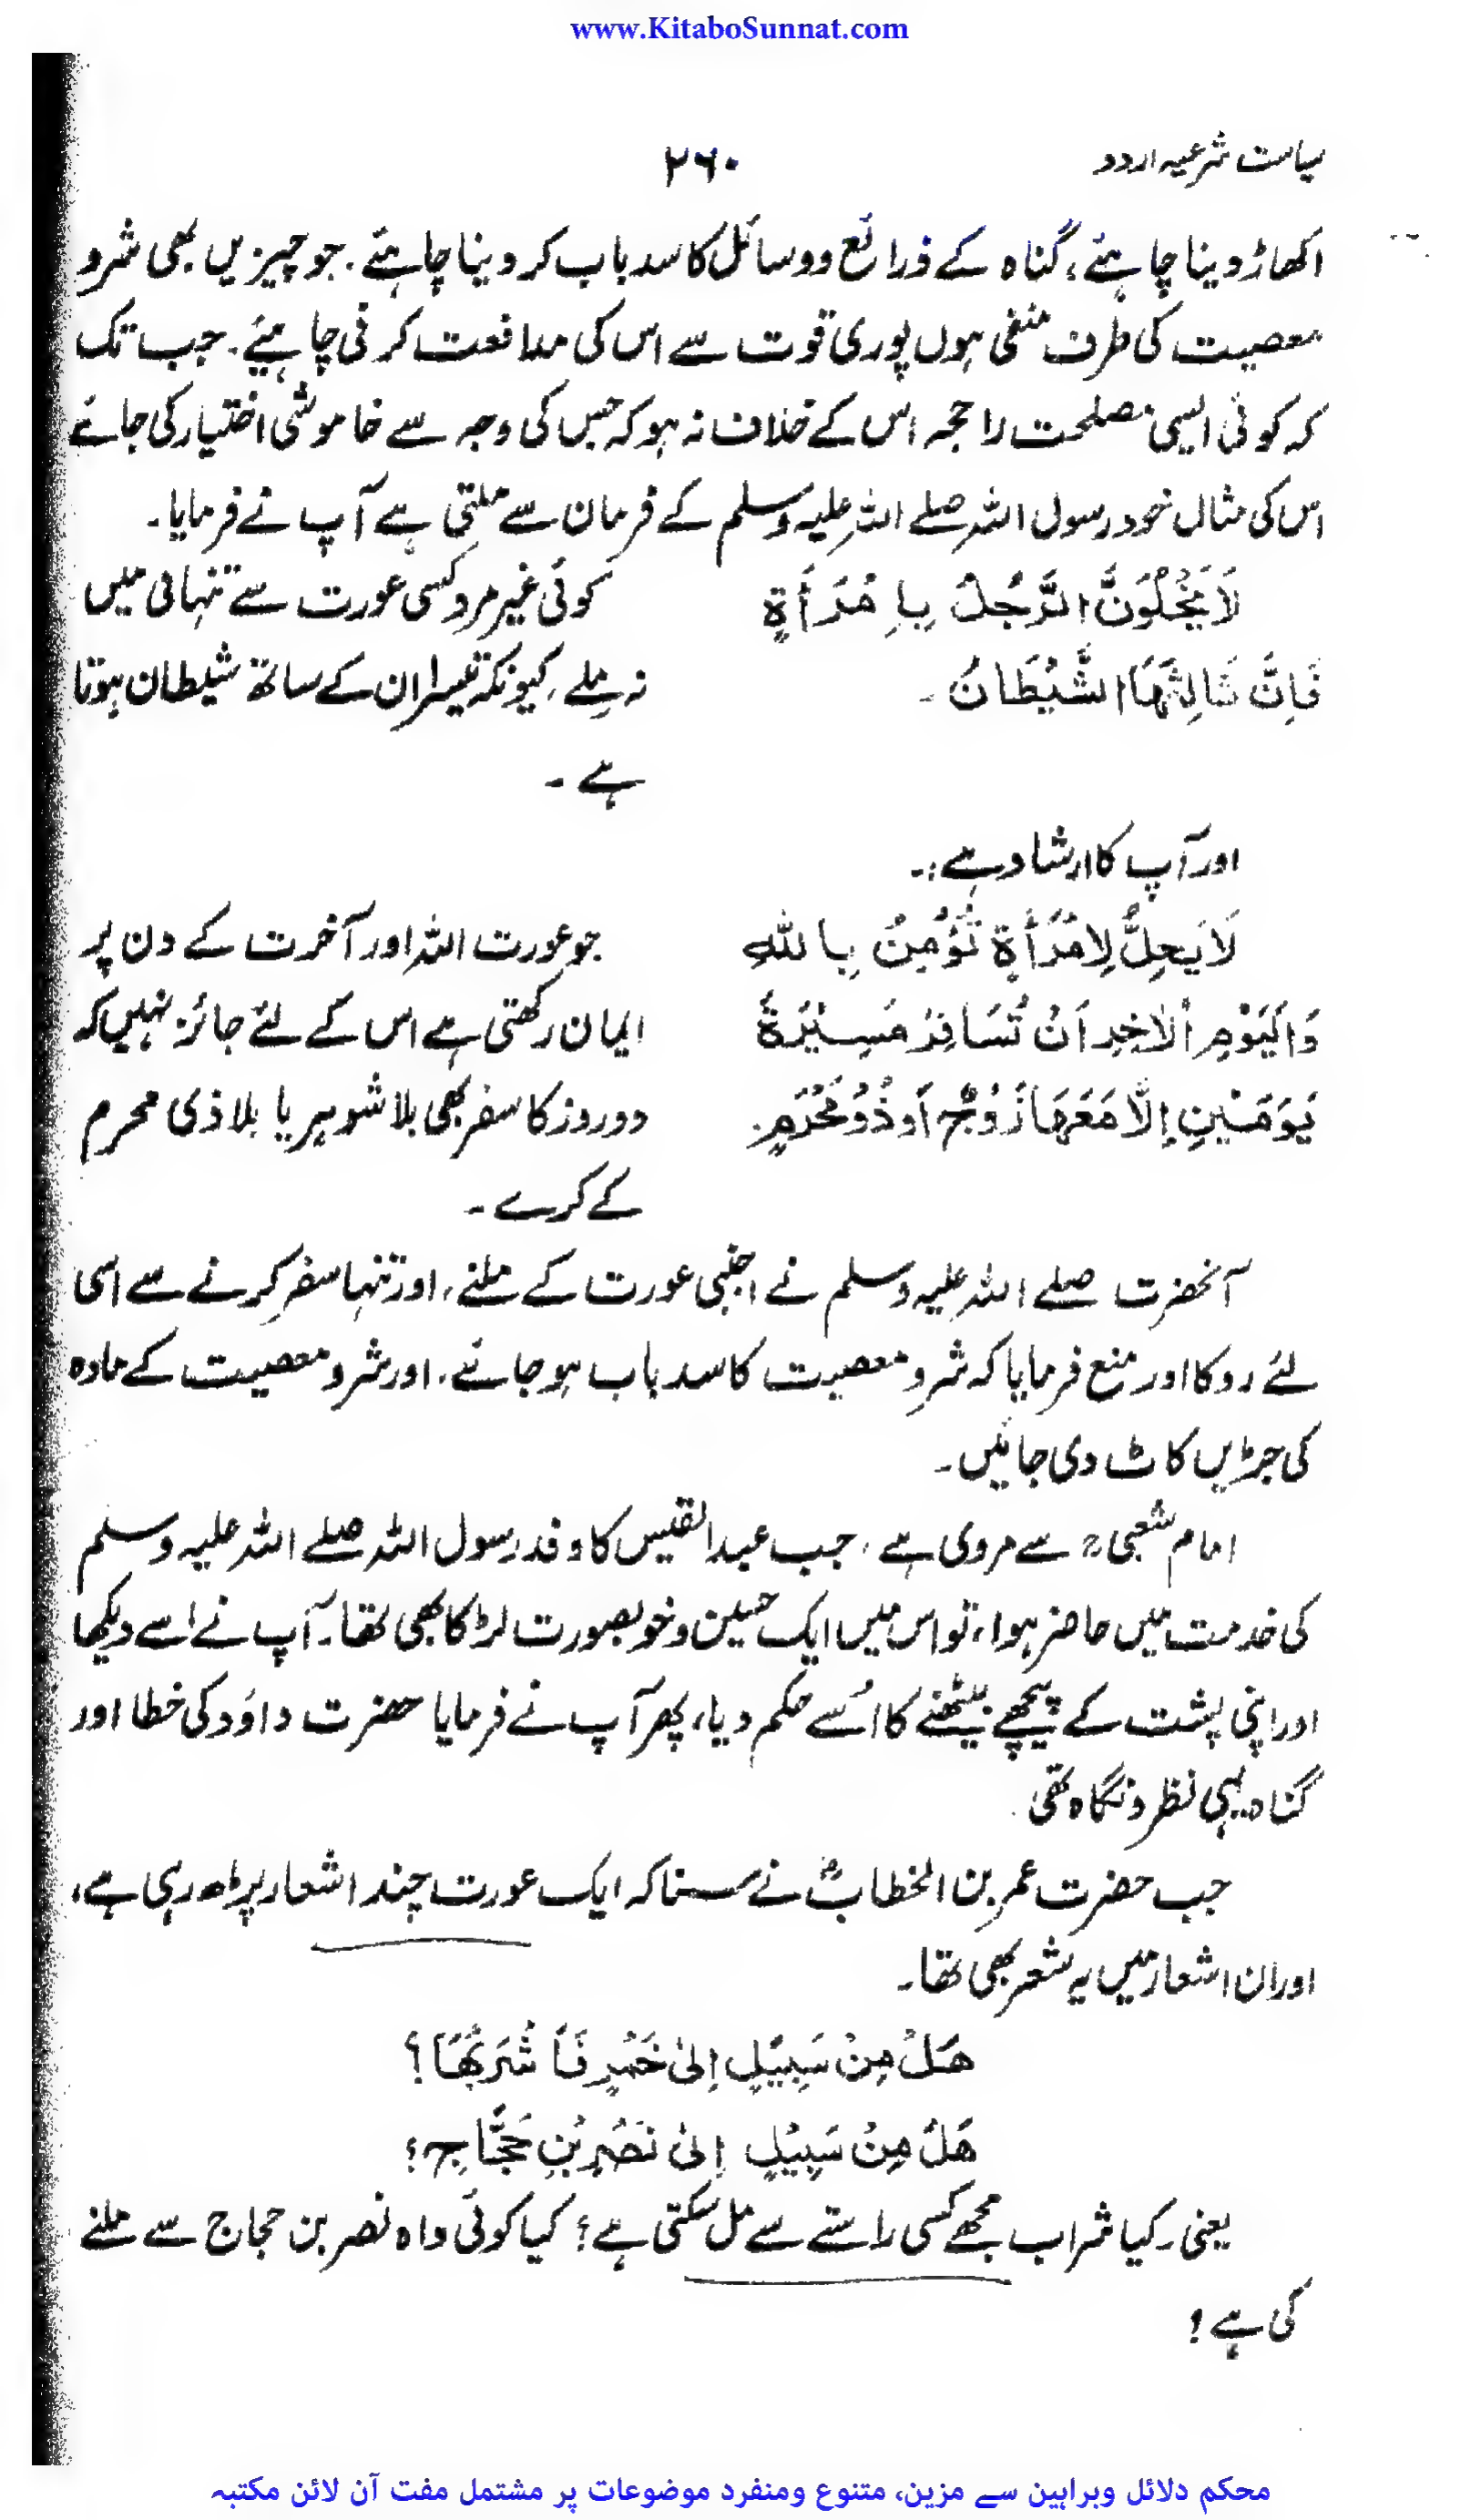 www.KitaboSunnat.com
سیاست شرعیہ اردو ۲۶۰
اکھاڑ دینا چاہئے، گناہ کے ذرائع و وسائل کا سدباب کر دینا چاہئے. جو چیزیں بھی شر و
معصیت کی طرف منفی ہوں پوری قوت سے اس کی مدافعت کرنی چاہیئے. جب تک
کہ کوئی ایسی مصلحت راجحہ اس کے خلاف نہ ہو کہ جس کی وجہ سے خاموشی اختیار کی جائے
اس کی مثال خود رسول اللہ صلے اللہ علیہ وسلم کے فرمان سے ملتی ہے آپ نے فرمایا۔
لَا يَخْلُوَنَّ الرَّجُلُ بِاِمْرَأَةٍ کوئی غیر مرد کسی عورت سے تنہائی میں
فَاِنَّ ثَالِثَهُمَا الشَّيْطَانُ۔ نہ ملے، کیونکہ تیسرا ان کے ساتھ شیطان ہوتا
ہے۔
اور آپ کا ارشاد ہے:۔
لَا يَحِلُّ لِامْرَأَةٍ تُؤْمِنُ بِاللّٰهِ جو عورت اللہ اور آخرت کے دن پر
وَالْيَوْمِ الْاٰخِرِ اَنْ تُسَافِرَ مَسِيْرَةَ ایمان رکھتی ہے اس کے لئے جائز نہیں کہ
يَوْمَيْنِ اِلَّا مَعَهَا زَوْجٌ اَوْ ذُوْ مَحْرَمٍ. دو روز کا سفر بھی بلا شوہر یا بلا ذی محرم
کے کرے۔
آنحضرت صلے اللہ علیہ وسلم نے اجنبی عورت کے ملنے، اور تنہا سفر کرنے سے اسی
لئے روکا اور منع فرمایا کہ شر و معصیت کا سدباب ہو جائے، اور شر و معصیت کے مادہ
کی جڑیں کاٹ دی جائیں۔
امام شعبیؒ سے مروی ہے، جب عبدالقیس کا وفد رسول اللہ صلے اللہ علیہ وسلم
کی خدمت میں حاضر ہوا، تو اس میں ایک حسین و خوبصورت لڑکا بھی تھا۔ آپ نے اسے دیکھا
اور اپنی پشت کے پیچھے بیٹھنے کا اُسے حکم دیا، پھر آپ نے فرمایا حضرت داؤد کی خطا اور
گناہ یہی نظر و نگاہ تھی
جب حضرت عمر بن الخطابؓ نے سنا کہ ایک عورت چند اشعار پڑھ رہی ہے،
اور ان اشعار میں یہ شعر بھی تھا۔
هَلْ مِنْ سَبِيْلٍ اِلىٰ خَمْرٍ فَاَشْرَبُهَا؟
هَلْ مِنْ سَبِيْلٍ اِلىٰ نَصْرِ بْنِ حَجَّاجٍ؟
یعنی۔ کیا شراب مجھے کسی راستے سے مل سکتی ہے؟ کیا کوئی راہ نصر بن حجاج سے ملنے
کی ہے؟
محکم دلائل وبراہین سے مزین، متنوع ومنفرد موضوعات پر مشتمل مفت آن لائن مکتبہ